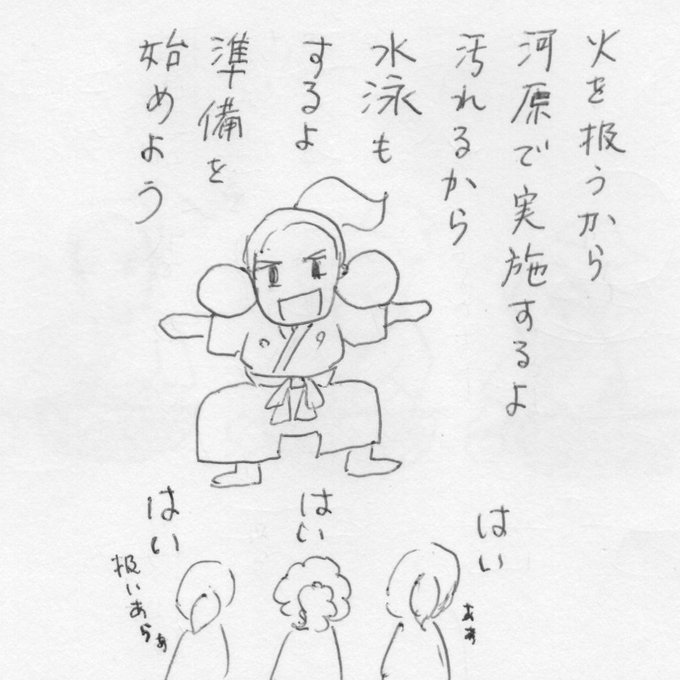 火を扱うから
河原で実施するよ
汚れるから
水泳も
するよ
準備を
始めよう
はい
はい
はい
扱いあらぁ